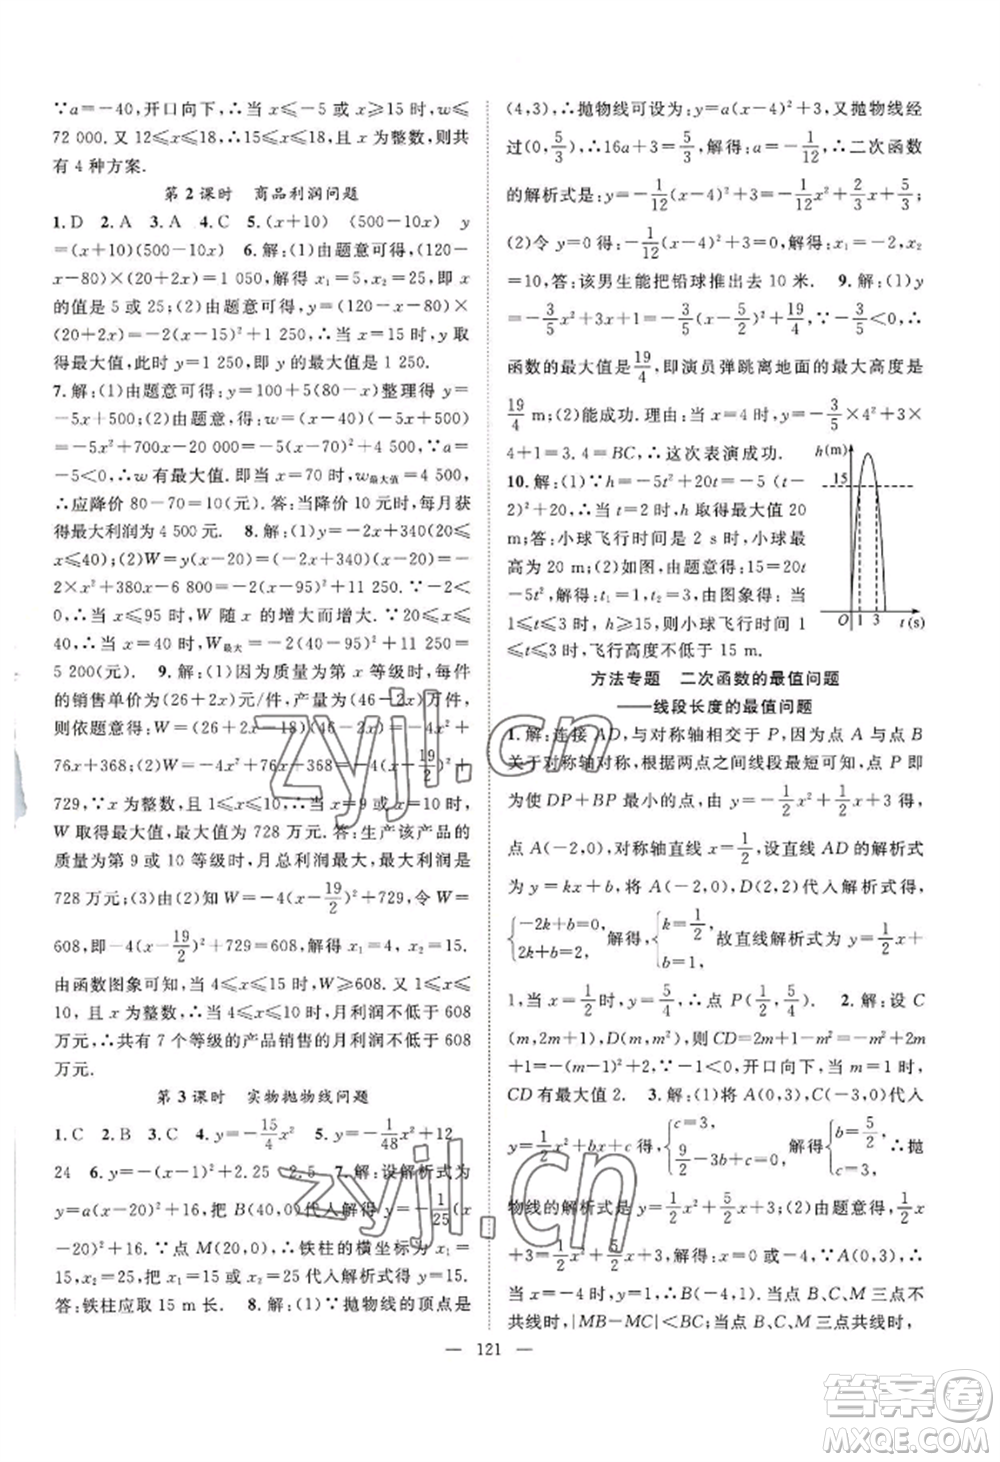 ∵a=-40,开口向下,∴当 x≤-5 或 x≥15 时,w≤
72 000. 又 12≤x≤18,∴15≤x≤18,且 x 为整数,则共
有 4 种方案.
第 2 课时 商品利润问题
1. D 2. A 3. A 4. C 5. (x+10) (500-10x) y
=(x+10)(500-10x) 6. 解:(1)由题意可得,(120-
x-80)×(20+2x)=1 050,解得 x₁=5,x₂=25,即 x
的值是 5 或 25;(2)由题意可得,y=(120-x-80)×
(20+2x)=-2(x-15)²+1 250,∴当 x=15 时,y 取
得最大值,此时 y=1 250,即 y 的最大值是 1 250.
7. 解:(1)由题意可得:y=100+5(80-x)整理得 y=
-5x+500;(2)由题意,得:w=(x-40)(-5x+500)
=-5x²+700x-20 000=-5(x-70)²+4 500,∵a=
-5<0,∴w 有最大值. 即当 x=70 时,w最大值=4 500,
∴应降价 80-70=10(元). 答:当降价 10 元时,每月获
得最大利润为 4 500 元. 8. 解:(1)y=-2x+340(20≤
x≤40);(2)W=y(x-20)=(-2x+340)(x-20)=-
2x²+380x-6 800=-2(x-95)²+11 250,∵-2<0,
∴当 x≤95 时,W 随 x 的增大而增大. ∵20≤x≤
40,∴当 x=40 时,W最大=-2(40-95)²+11 250=
5 200(元). 9. 解:(1)因为质量为第 x 等级时,每件
的销售单价为(26+2x)元,产量为(46-2x)万件,
则依题意为:W=(26+2x-18)(46-2x)=-4x²+
76x+368;(2)W=-4x²+76x+368=-4(x-19/2)²+
729,∵x 为整数,且 1≤x≤10,∴当 x=9 或 10 时,
W 取得最大值,最大值为 728 万元. 答:生产该产品的
质量为第 9 或 10 等级时,月总利润最大,最大利润为
728 万元;(3)由(2)知 W=-4(x-19/2)²+729,令 W=
608,即-4(x-19/2)²+729=608,解得 x=4 或 x=15.
由函数图象可知,当 4≤x≤15 时,W≥608. 又 1≤x≤
10,且 x 为整数,∴当 4≤x≤10 时,月利润不低于 608
万元,∴共有 7 个等级的产品销售的月利润不低于 608
万元.
第 3 课时 实物抛物线问题
1. C 2. B 3. C 4. y=-15/4x² 5. y=-1/48x²+12
24 6. y=-(x-1)²+2.25 2.5 7. 解:设解析式为
y=a(x-20)²+16,把 B(40,0)代入得 y=-1/25(x
-20)²+16. ∵点 M(20,0),∴铁柱的横坐标为
15,x₂=25,把 x₁=15 或 x₂=25 代入解析式得 y=15.
答:铁柱应取 15 m 长. 8. 解:(1)∵抛物线的顶点是
(4,3),∴抛物线可设为:y=a(x-4)²+3,又抛物线经
过(0,5/3),∴16a+3=5/3,解得:a=-1/12,∴二次函数
的解析式是:y=-1/12(x-4)²+3=-1/12x²+2/3x+5/3;
(2)令 y=0,则-1/12(x-4)²+3=0,解得:x₁=-2,x₂
=10,答:该男生能把铅球推出去 10 米. 9. 解:(1)y
=-3/5x²+3x+1=-3/5(x-5/2)²+19/4,∵-3/5<0,∴
函数的最大值是19/4,即演员弹跳离地面的最大高度是
19/4 m;(2)能成功. 理由:当 x=4 时,y=-3/5×4²+3×
4+1=3.4=BC,∴这次表演成功.
10. 解:(1)∵h=-5t²+20t=-5(t-
2)²+20,∴当 t=2 时,h 取最大值 20
m;答:小球飞行时间是 2 s 时,小球最
高为 20 m;(2)如图,由题意得:15=20t
-5t²,解得:t₁=1,t₂=3,由图象得:当
1≤t≤3 时,h≥15,则小球飞行时间
1≤t≤3 时,飞行高度不低于 15 m.
h(m)
15
O 1 3 t(s)
方法专题 二次函数的最值问题
——线段长度的最值问题
1. 解:连接 AD,与对称轴相交于 P,因为点 A 与点 B
关于对称轴对称,根据两点之间线段最短可知,点 P 即
为使 DP+BP 最小的点,由 y=-1/2x²+1/2x+3得,
点 A(-2,0),对称轴直线 x=1/2,设直线 AD 的解析式
为 y=kx+b,将 A(-2,0)、D(2,2)代入解析式得,
{-2k+b=0, 2k+b=2, 解得,{k=1/2, b=1, 故直线解析式为 y=1/2x+
1,当 x=1/2时,y=5/4,∴点 P(1/2,5/4). 2. 解:设 C
(m,2m+1),D(m,m²),则 CD=2m+1-m²=-m²
+2m+1=-(m-1)²+2,∵a=-1<0,∴当 m=1 时,
CD 有最大值 2. 3. 解:(1)将 A(0,3)、C(-3,0)代入
y=1/2x²+bx+c 得:{c=3, 9/2-3b+c=0, 解得{b=5/2, c=3, ∴抛
物线的解析式是:y=1/2x²+5/2x+3;(2)由题意得:1/2x
+3=1/2x²+5/2x+3,解得:x₁=0,x₂=-4. ∵A(0,3),
当 x=-4 时,y=1,∴B(-4,1). 当点 B、C、M 三点不
共线时,|MB-MC|<BC;当点 B、C、M 三点共线时,
— 121 —
zyjl.cn
zyjl.cn
答案圈
MXQE.COM